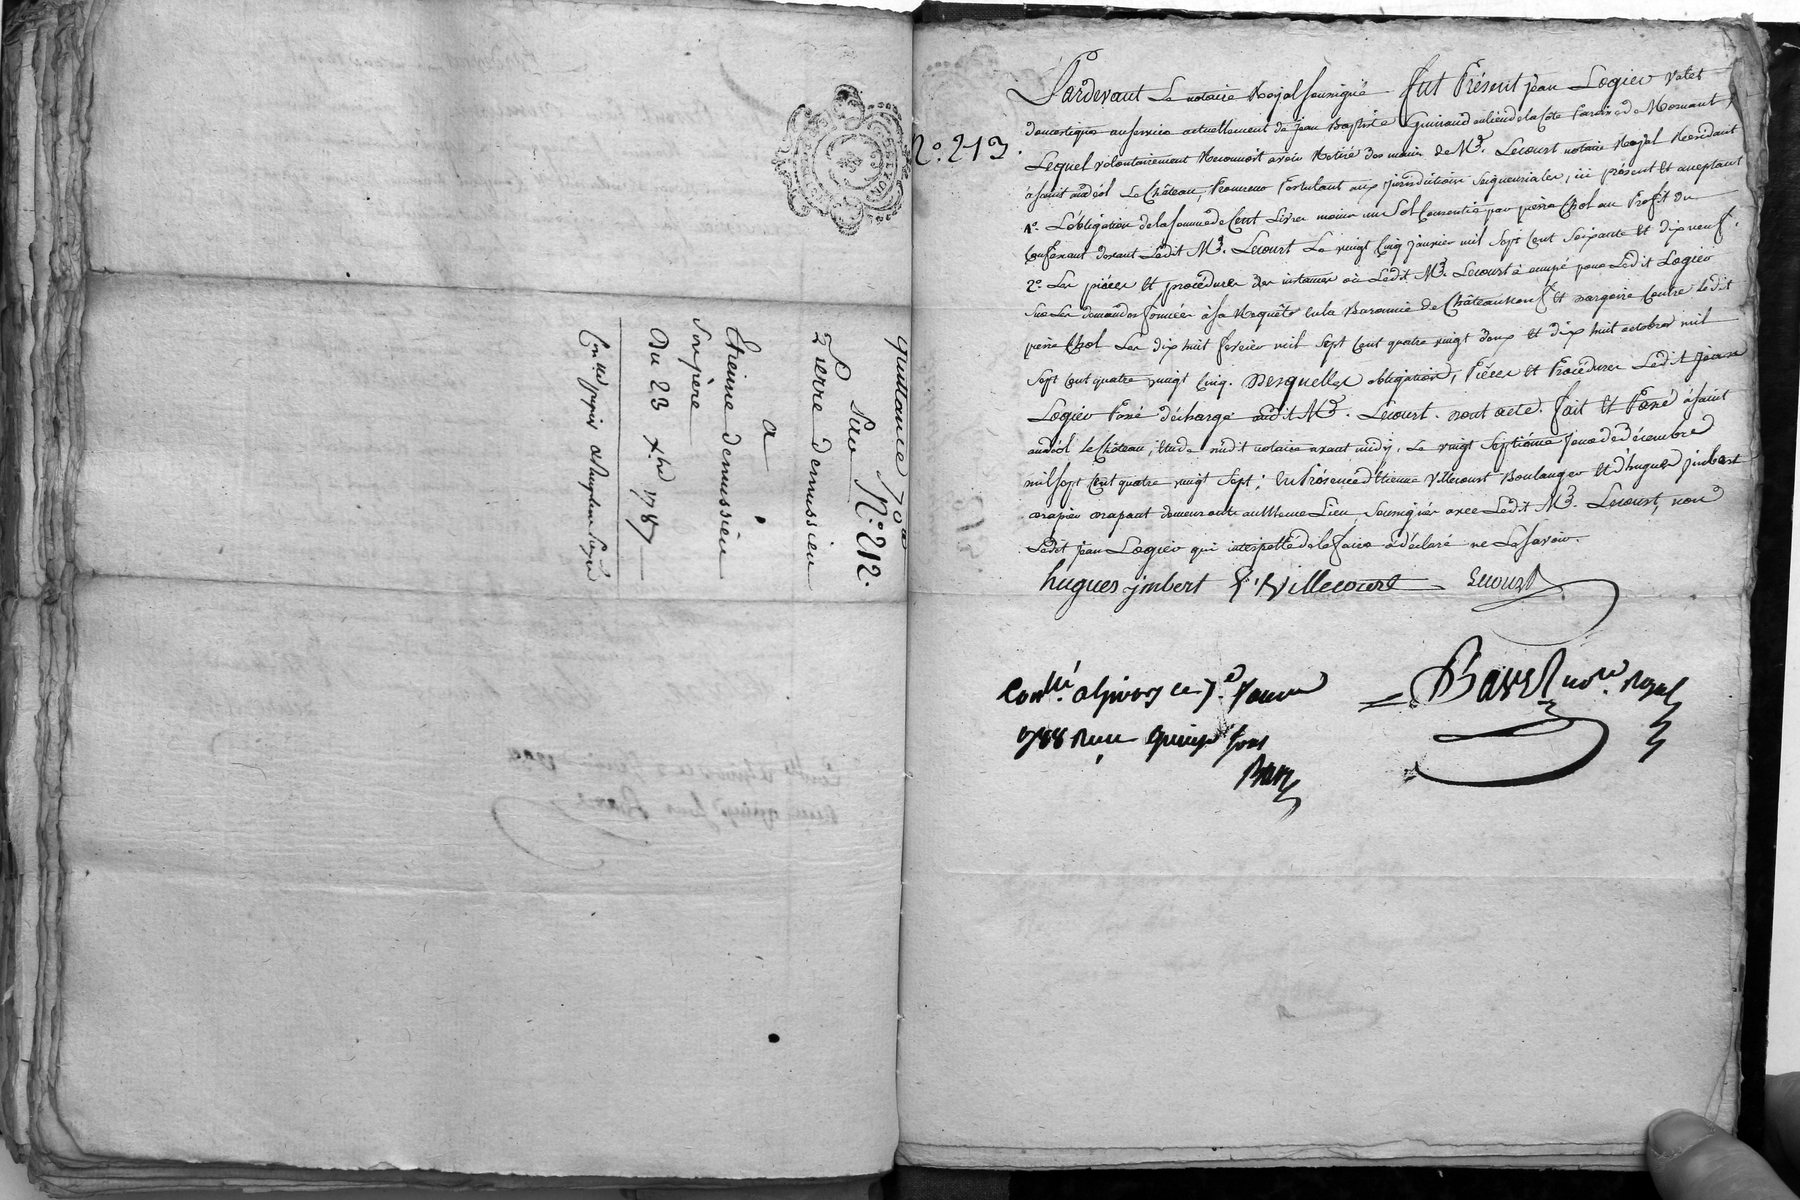 quittance 70ll
Sur N.º 212.
Pierre demussieu
a
Etienne demussieu
son père
Du 23 Xbre 1787
N.º 213.
Pardevant Le notaire Royal soussigné fut Présent jean Logier valet
domestique au service actuellement de jean Baptiste Guinand au lieu de la Côte Paroisse de Mornant,
Lequel volontairement Reconnoit avoir Retiré des mains de Me. Lecourt notaire Royal Residant
à saint andéol Le Château, Procureur Postulant aux jurisdictions seigneuriales, ici présent et acceptant
1º. L'obligation de la somme de Cent Livres moins un sol Consentie par pierre Chol au Profit du
Confessant devant Ledit Me. Lecourt Le vingt Cinq janvier mil sept Cent soixante et dix neuf.
2º. Les pièces et procédures des instances où Ledit Me. Lecourt à occupé pour Ledit Logier
sur Les demandes formées à sa Requête en la Baronnie de Châteauneuf et dargoire Contre Ledit
pierre Chol Les dix huit fevrier mil sept Cent quatre vingt deux et dix huit octobre mil
sept Cent quatre vingt Cinq. Desquelles obligation, Pièces et Procédures Ledit jean
Logier Passe décharge audit Me. Lecourt. dont acte. fait et Passé à saint
andéol le Château, Etude dudit notaire avant midy, Le vingt septième jour de décembre
mil sept Cent quatre vingt sept; En Présence d'Etienne Villecourt Boulanger et d'hugues jmbert
drapier drapant demeurants au Meme Lieu, soussignés avec Ledit Me. Lecourt, non
Ledit jean Logier qui interpellé de le faire à déclaré ne Le savoir.
hugues jmbert E. Villecourt Lecourt
Conllé a Givors ce 7.e Janvier
1788 Reçu quinze sous
Baret nore. Royal